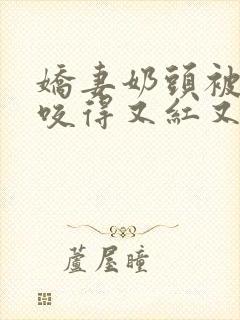 嬌妻奶頭被
咬得又紅又
蘆屋瞳